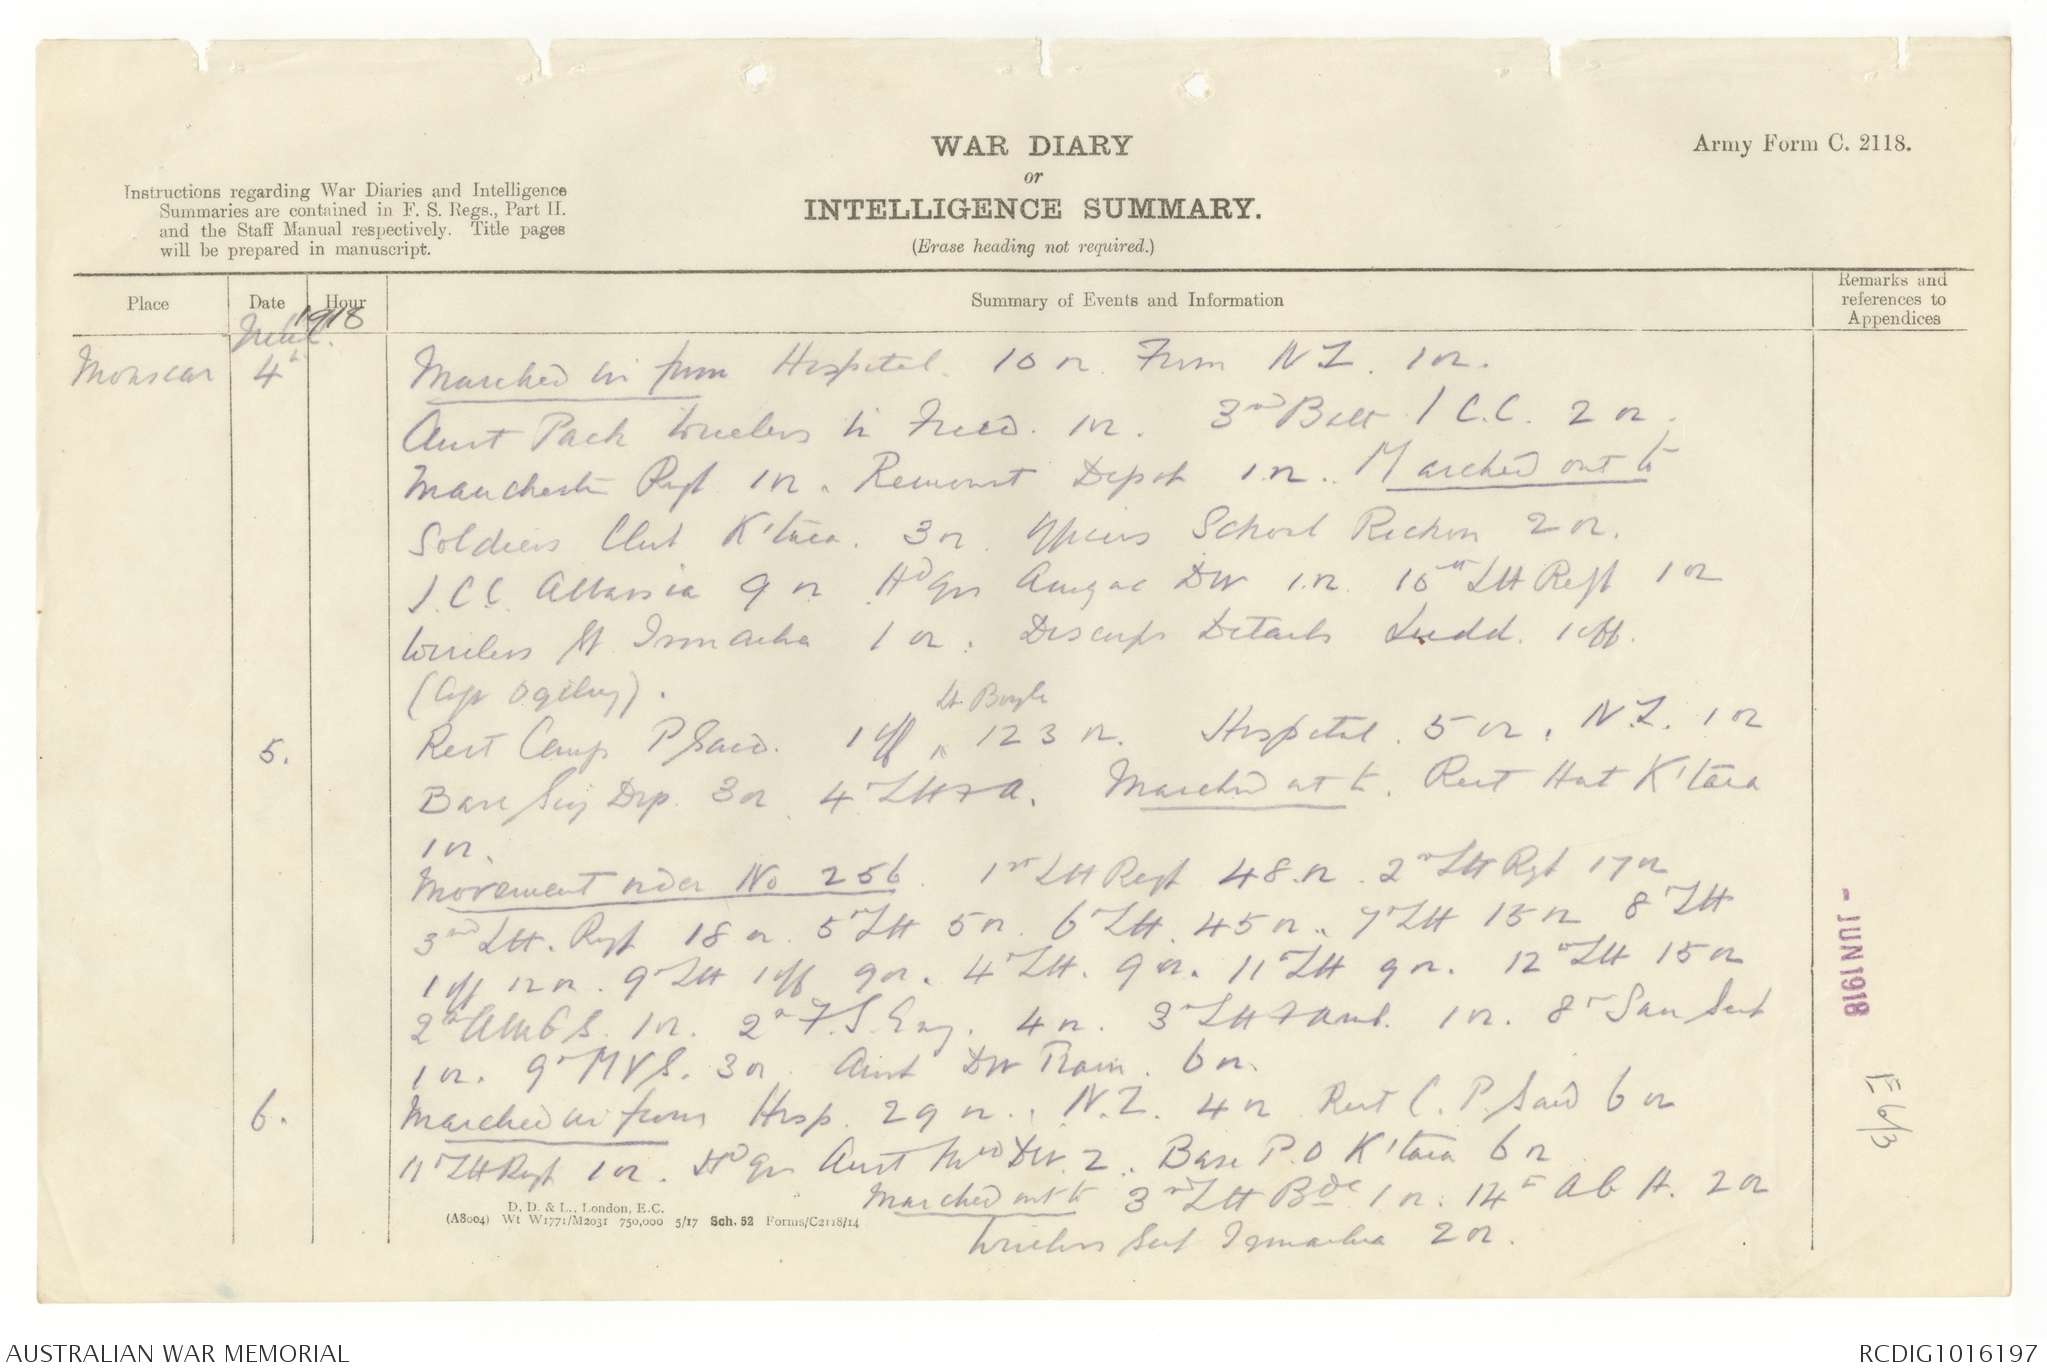 WAR DIARY
or
INTELLIGENCE SUMMARY.
(Erase heading not required.)
Army Form C. 2118.
Instructions regarding War Diaries and Intelligence
Summaries are contained in F. S. Regs., Part II.
and the Staff Manual respectively. Title pages
will be prepared in manuscript.
Place Date Hour Summary of Events and Information Remarks and references to Appendices
1918
Moascar 4th Marched in from Hospital. 10 or. From N Z. 1 or.
Aust Pack Wireless 1 or. 3rd Batt I C.C. 2 or.
Manchester Rgt 1 or. Remount Depot 1 or. Marched out to
Soldiers Club K'tara. 3 or. Officers School Richon 2 or.
I.C.C. Abbassia 9 or Hd Qrs Anzac Div 1 or. 10th LH Regt 1 or
Wireless St Ismailia 1 or. Details Ludd. 1 off.
(Cap Ogilvy).
Lt Boyle
5. Rest Camp P Said. 1 off ^ 123 or. Hospital. 5 or. N.Z. 1 or
Base Sig Dep. 3 or. 4th LHFA. Marched out to. Rest Hut K'tara
1 or.
Movement order No 256. 1st LH Regt 48 or. 2nd LH Rgt 17 or
3rd LH. Rgt 18 or. 5th LH 5 or. 6th LH. 45 or. 7th LH 15 or 8th LH
1 off 12 or. 9th LH 1 off 9 or. 4th LH. 9 or. 11th LH 9 or. 12th LH 15 or
2nd AMGS. 1 or. 2nd F.S. Eng. 4 or. 3rd LHFAmb. 1 or. 8th San Sect
1 or. 9th MVS. 3 or. Aust Div Train. 6 or.
6. Marched in from Hosp. 29 or. N.Z. 4 or Rest C. P. Said 6 or
11th LH Rgt 1 or. Hd Qrs Aust Mtd Div. 2. Base P.O K'tara 6 or
Marched out to 3rd LH Bde 1 or. 14th A G H. 2 or
Wireless Sect Ismailia 2 or.
- JUN 1918
E 6/3
D. D. & L., London, E.C.
(A8004) Wt W1771/M2031 750,000 5/17 Sch. 52 Forms/C2118/14
AUSTRALIAN WAR MEMORIAL
RCDIG1016197